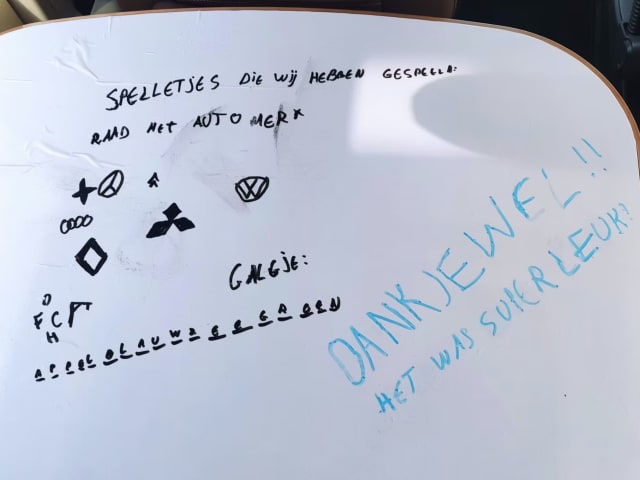 SPELLETJES DIE WIJ HEBBEN GESPEELD:
RAAD HET AUTO MERK
GALGJE:
O
F C
H
APPELBLAUWZEEGROEN
DANKJEWEL!!
HET WAS SUPER LEUK!